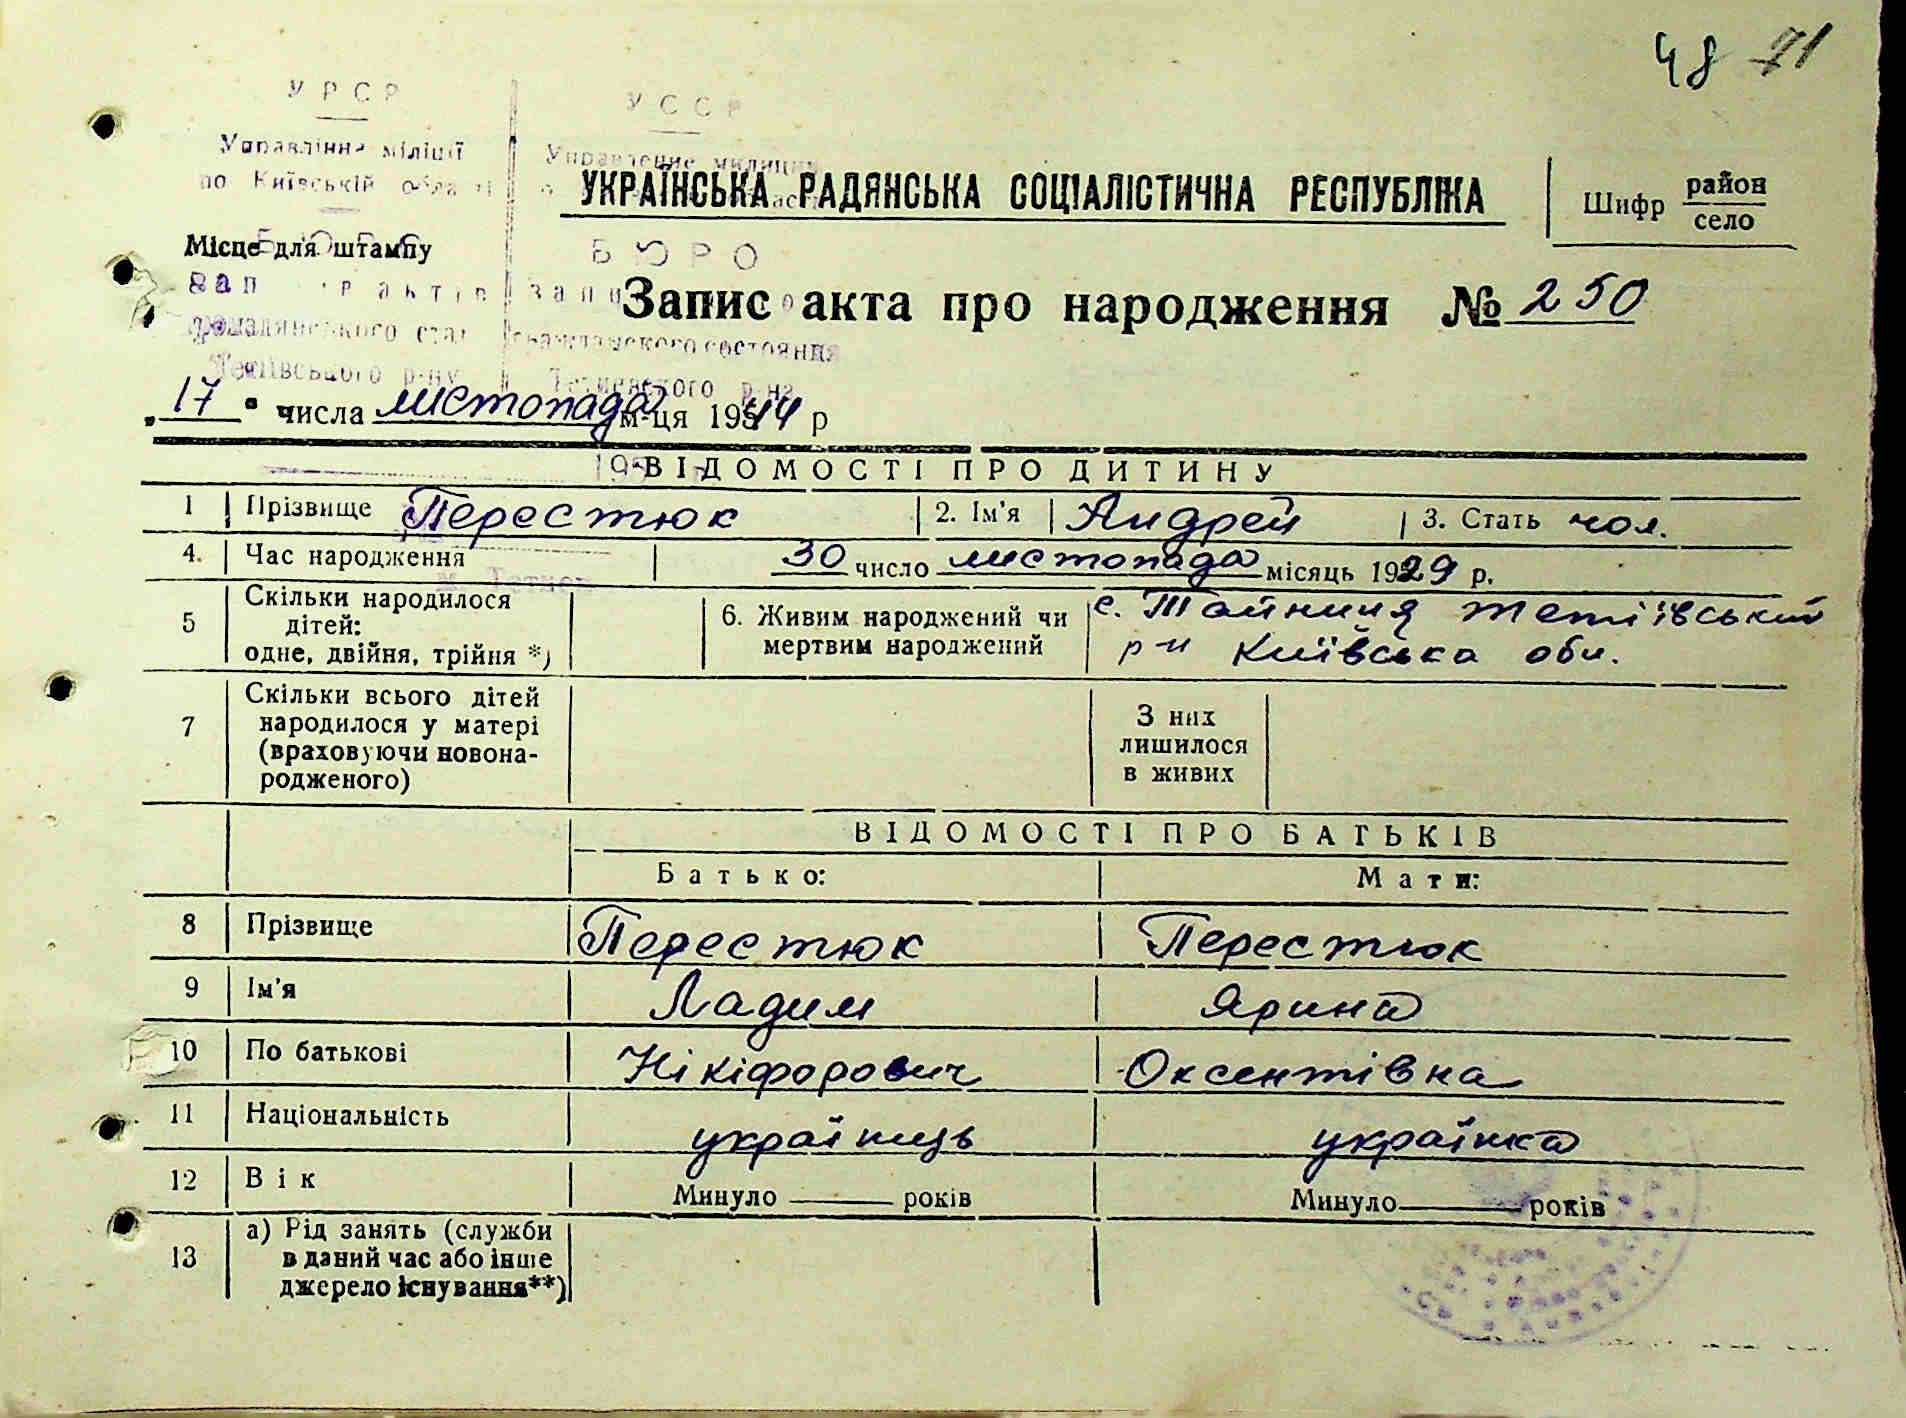 48 71
УРСР
УССР
Управління міліції
по Київській області
Управление милиции
УКРАЇНСЬКА РАДЯНСЬКА СОЦІАЛІСТИЧНА РЕСПУБЛІКА
Шифр район
село
Місце для штампу
БЮРО
Запис акта про народження № 250
громадянського стану
гражданского состояния
Тетіївського р-ну
Тетиевского р-на
„17“ числа листопада м-ця 1944 р
195
ВІДОМОСТІ ПРО ДИТИНУ
1 Прізвище Перестюк 2. Ім'я Андрей 3. Стать чол.
4. Час народження 30 число листопада місяць 1929 р.
м. Тетиев
5 Скільки народилося дітей: одне, двійня, трійня *)
6. Живим народжений чи мертвим народжений
с. Тайниця тетіївський
р-н Київська обл.
7 Скільки всього дітей народилося у матері (враховуючи новонародженого)
З них лишилося в живих
ВІДОМОСТІ ПРО БАТЬКІВ
Батько: Мати:
8 Прізвище Перестюк Перестюк
9 Ім'я Ладим Ярина
10 По батькові Нікіфорович Оксентівна
11 Національність українець українка
12 Вік Минуло років Минуло років
13 а) Рід занять (служби в даний час або інше джерело існування**)